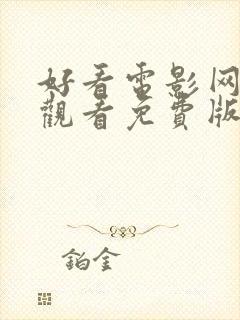 好看電影网
觀看免費版
鉑金